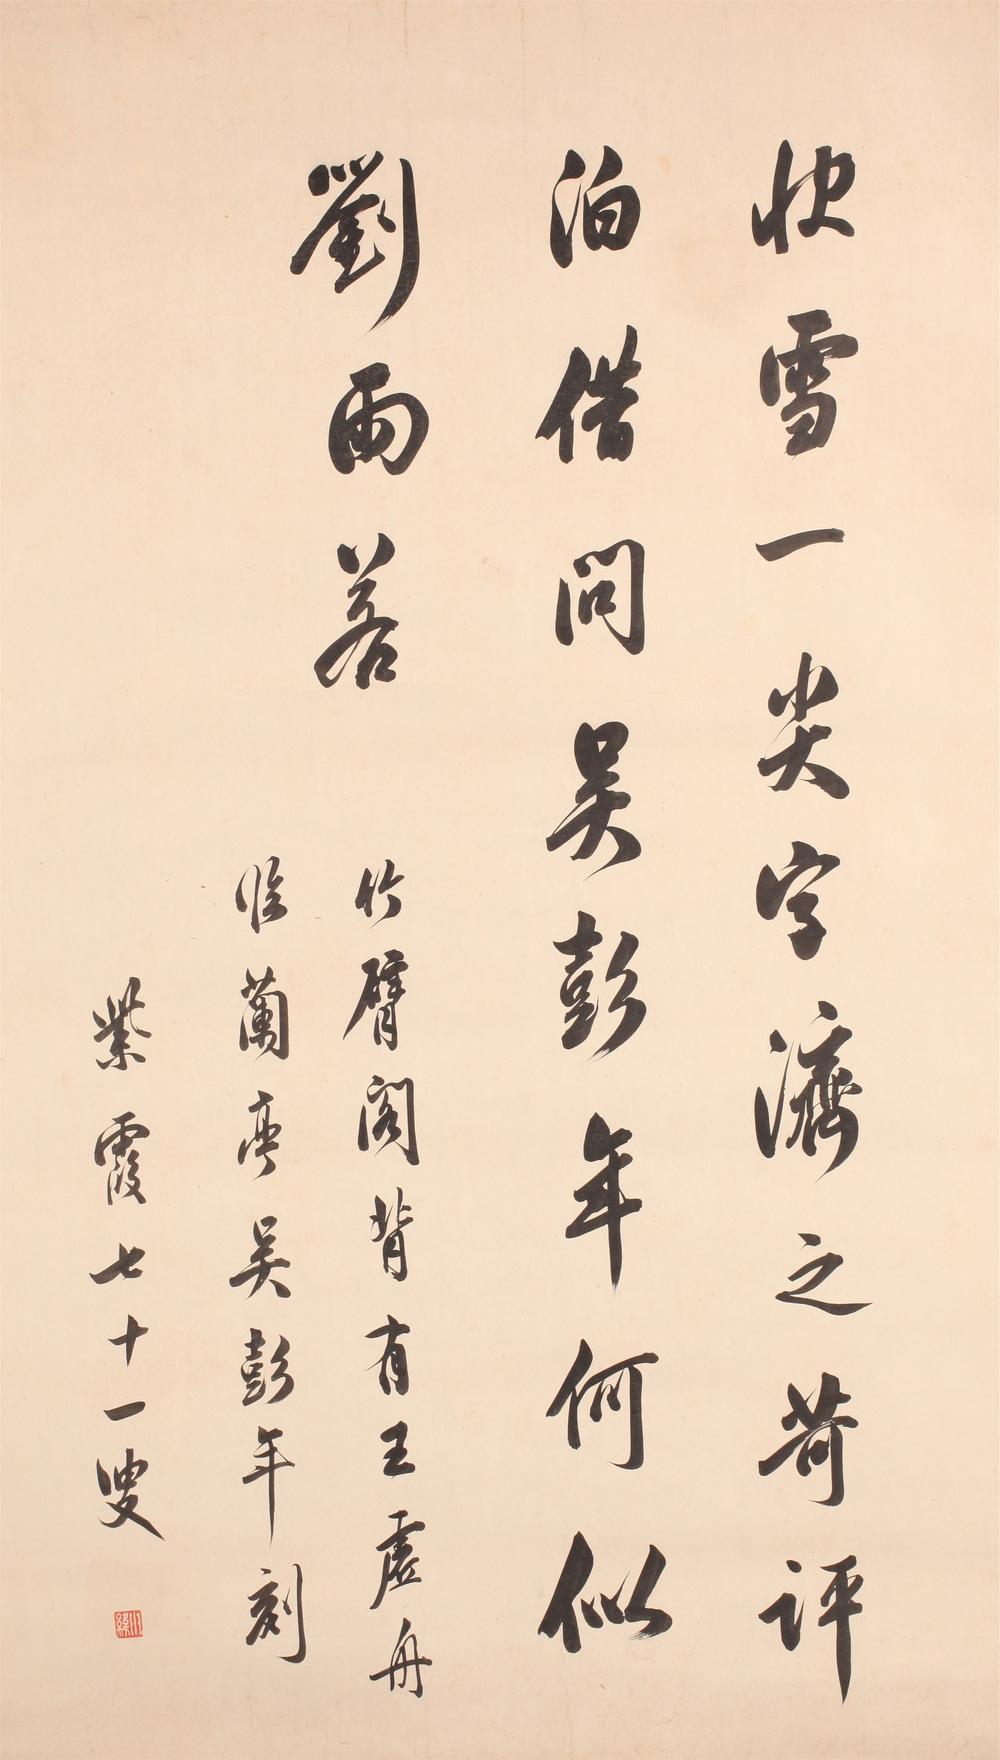 快雪一尖字濟之苛評
泊借問吳彭年何似
劉雨若
竹臂閣背有王虛舟
臨蘭亭吳彭年刻
紫霞七十一叟